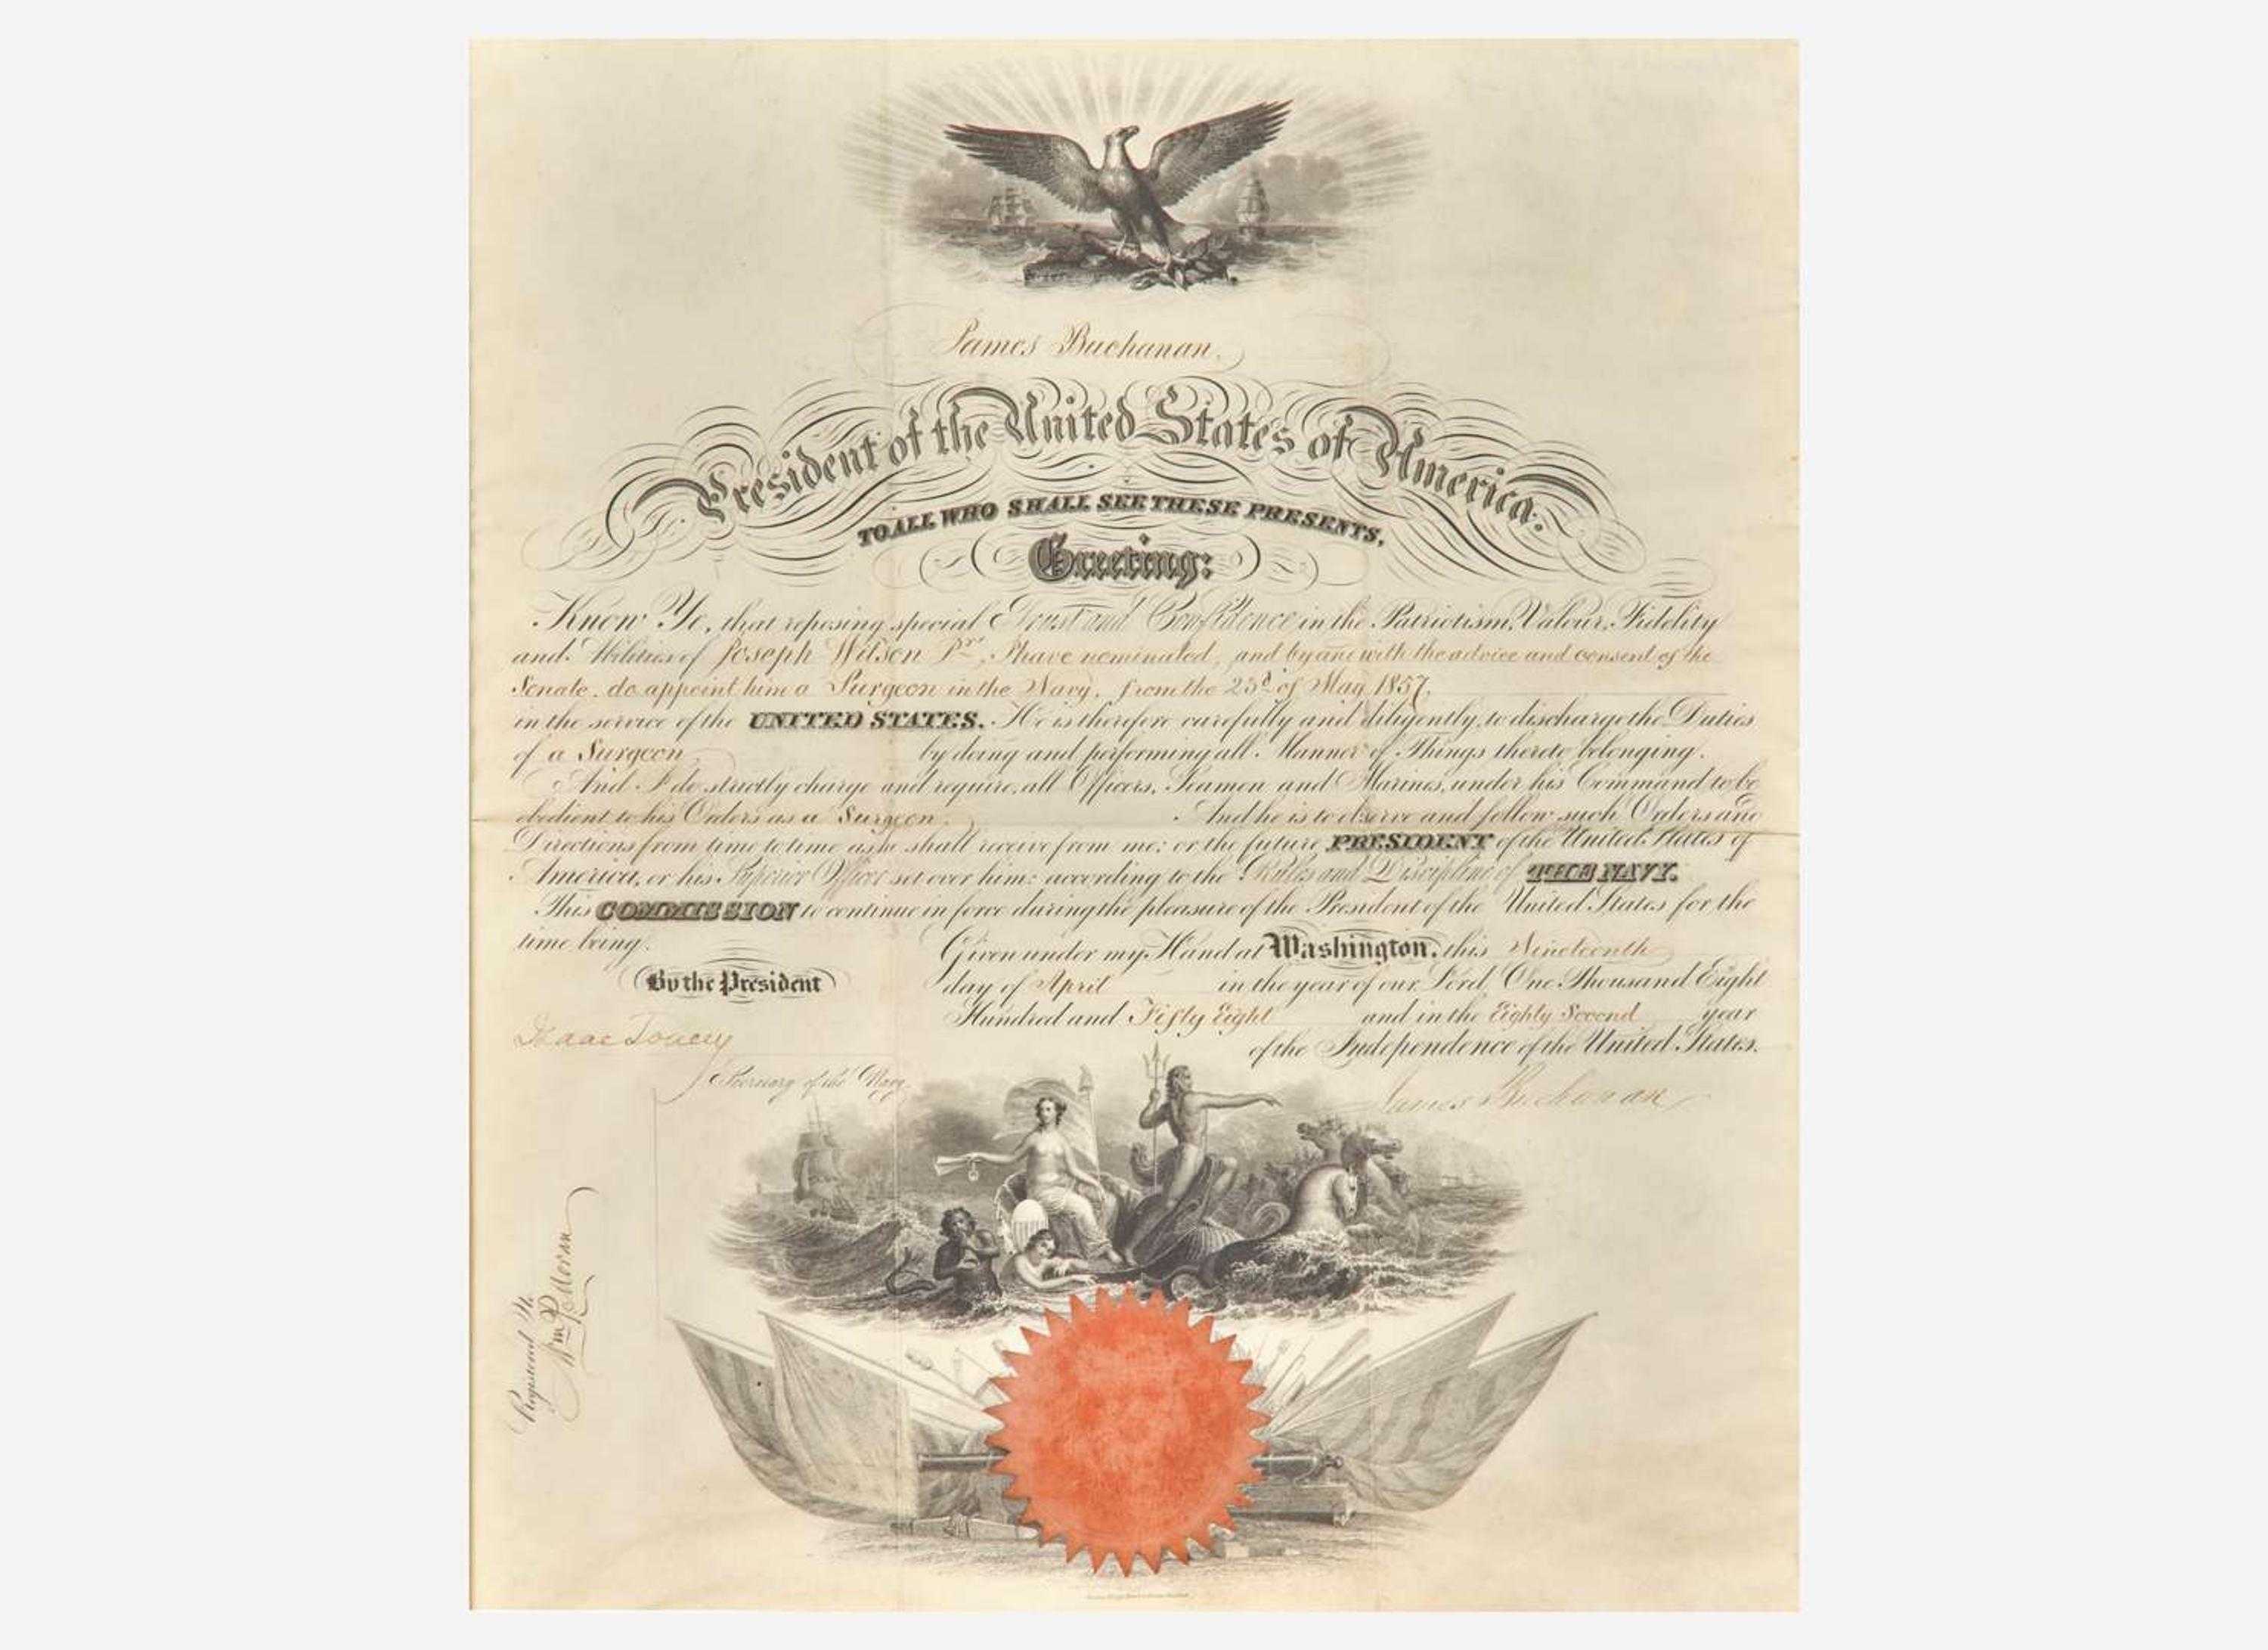 James Buchanan,
President of the United States of America.
TO ALL WHO SHALL SEE THESE PRESENTS,
Greeting:
Know Ye, that reposing special Trust and Confidence in the Patriotism, Valour, Fidelity
and Abilities of Joseph Wilson Jr., I have nominated, and by and with the advice and consent of the
Senate, do appoint him a Surgeon in the Navy, from the 23d of May 1857,
in the service of the UNITED STATES. He is therefore carefully and diligently, to discharge the Duties
of a Surgeon by doing and performing all Manner of Things thereto belonging.
And I do strictly charge and require, all Officers, Seamen and Marines, under his Command to be
obedient to his Orders as a Surgeon. And he is to observe and follow such Orders and
Directions from time to time as he shall receive from me: or the future PRESIDENT of the United States of
America, or his Superior Officer set over him: according to the Rules and Discipline of THE NAVY.
This COMMISSION to continue in force during the pleasure of the President of the United States for the
time being.
Given under my Hand at Washington, this Nineteenth
day of April in the year of our Lord, One Thousand Eight
Hundred and Fifty Eight and in the Eighty Second year
of the Independence of the United States.
By the President
James Buchanan
Isaac Toucey
Secretary of the Navy.
Registered
Wm P. Moran